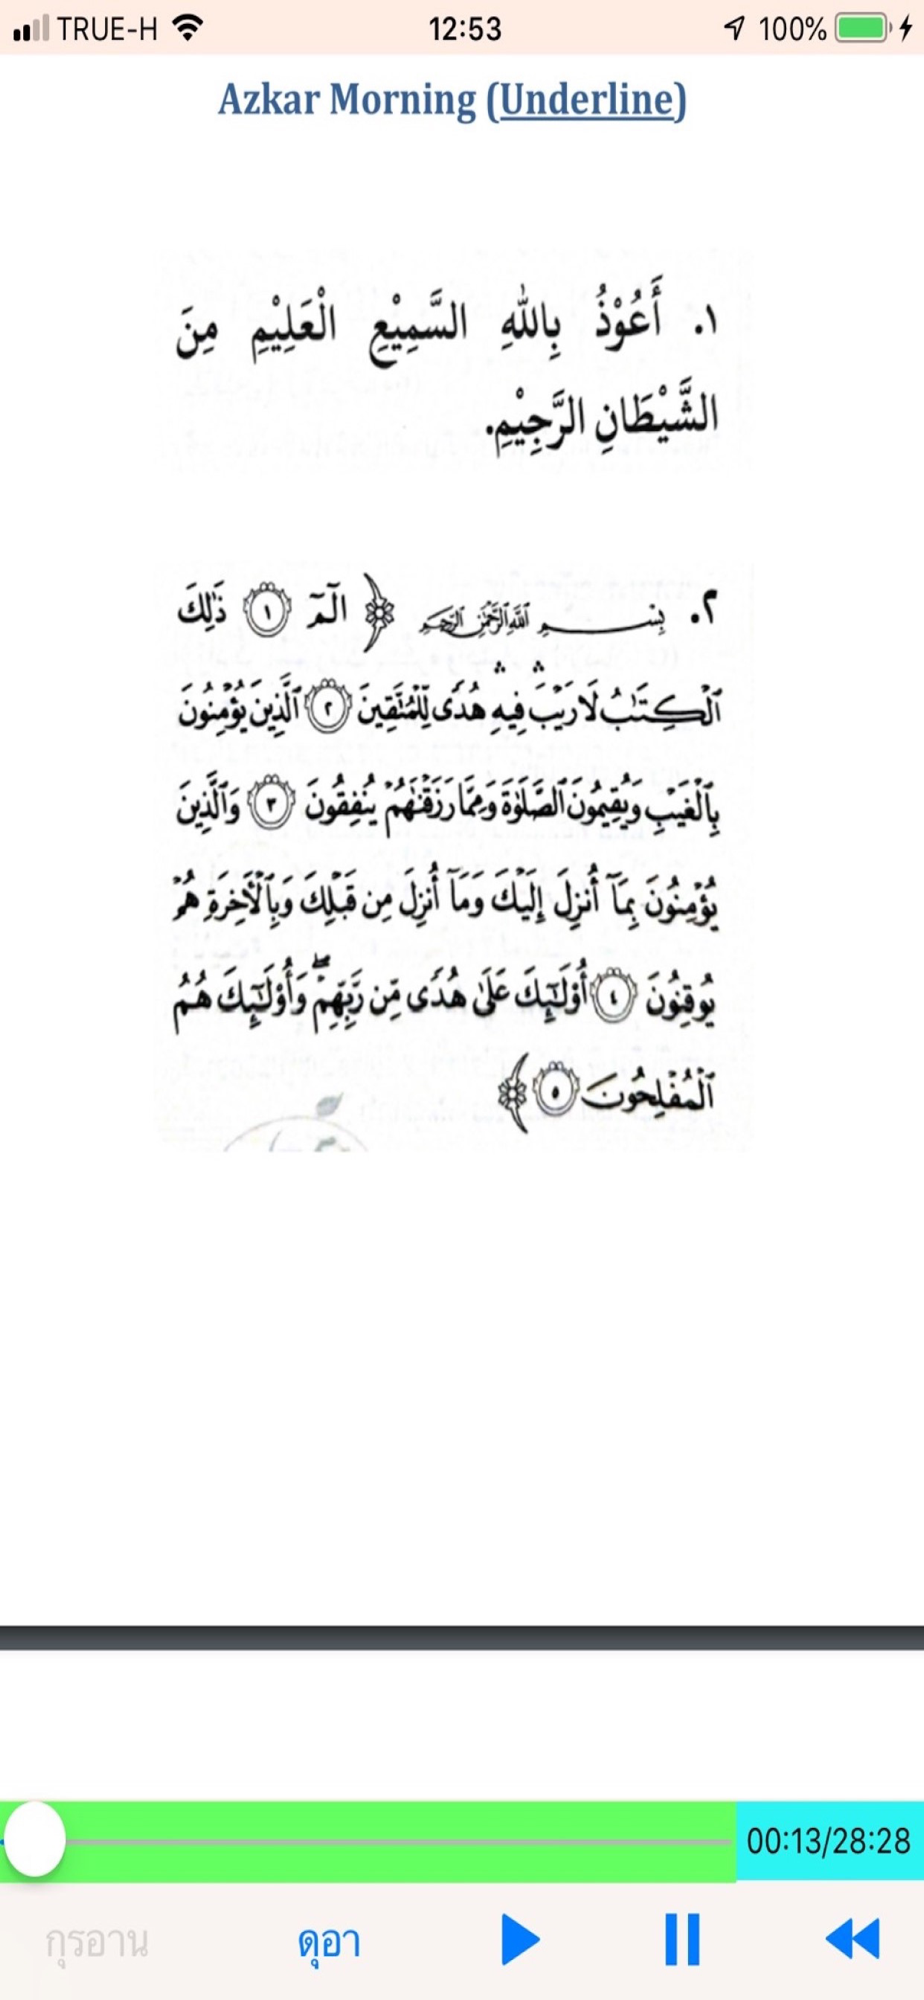 TRUE-H 12:53 100%
Azkar Morning (Underline)
١. أَعُوْذُ بِاللهِ السَّمِيْعِ الْعَلِيْمِ مِنَ
الشَّيْطَانِ الرَّجِيْمِ.
٢. بِسْمِ ٱللَّهِ ٱلرَّحْمَٰنِ ٱلرَّحِيمِ ﴿ الٓمٓ ١ ذَٰلِكَ
ٱلْكِتَٰبُ لَا رَيْبَ ۛ فِيهِ ۛ هُدًى لِّلْمُتَّقِينَ ٢ ٱلَّذِينَ يُؤْمِنُونَ
بِٱلْغَيْبِ وَيُقِيمُونَ ٱلصَّلَوٰةَ وَمِمَّا رَزَقْنَٰهُمْ يُنفِقُونَ ٣ وَٱلَّذِينَ
يُؤْمِنُونَ بِمَآ أُنزِلَ إِلَيْكَ وَمَآ أُنزِلَ مِن قَبْلِكَ وَبِٱلْأٓخِرَةِ هُمْ
يُوقِنُونَ ٤ أُو۟لَٰٓئِكَ عَلَىٰ هُدًى مِّن رَّبِّهِمْ ۖ وَأُو۟لَٰٓئِكَ هُمُ
ٱلْمُفْلِحُونَ ٥ ﴾
00:13/28:28
กุรอาน ดุอา